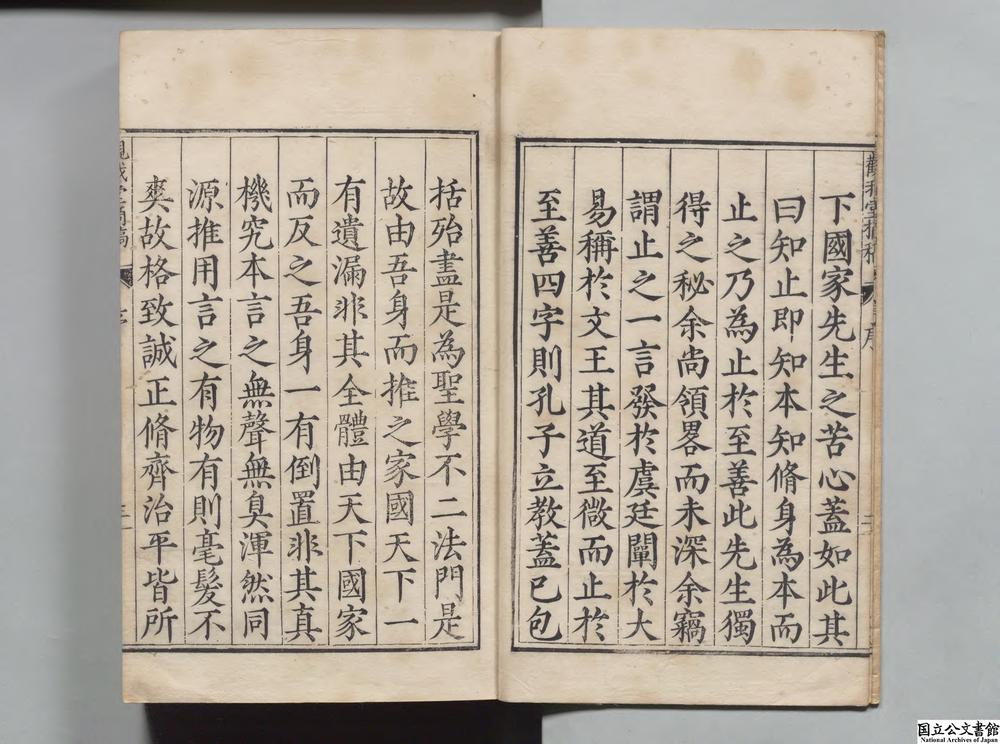 下國家先生之苦心蓋如此其
曰知止即知本知脩身為本而
止之乃為止於至善此先生獨
得之秘余尚領畧而未深余竊
謂止之一言發於虞廷闡於大
易稱於文王其道至微而止於
至善四字則孔子立教蓋已包
括殆盡是為聖學不二法門是
故由吾身而推之家國天下一
有遺漏非其全體由天下國家
而反之吾身一有倒置非其真
機究本言之無聲無臭渾然同
源推用言之有物有則毫髮不
爽故格致誠正脩齊治平皆所
国立公文書館
National Archives of Japan